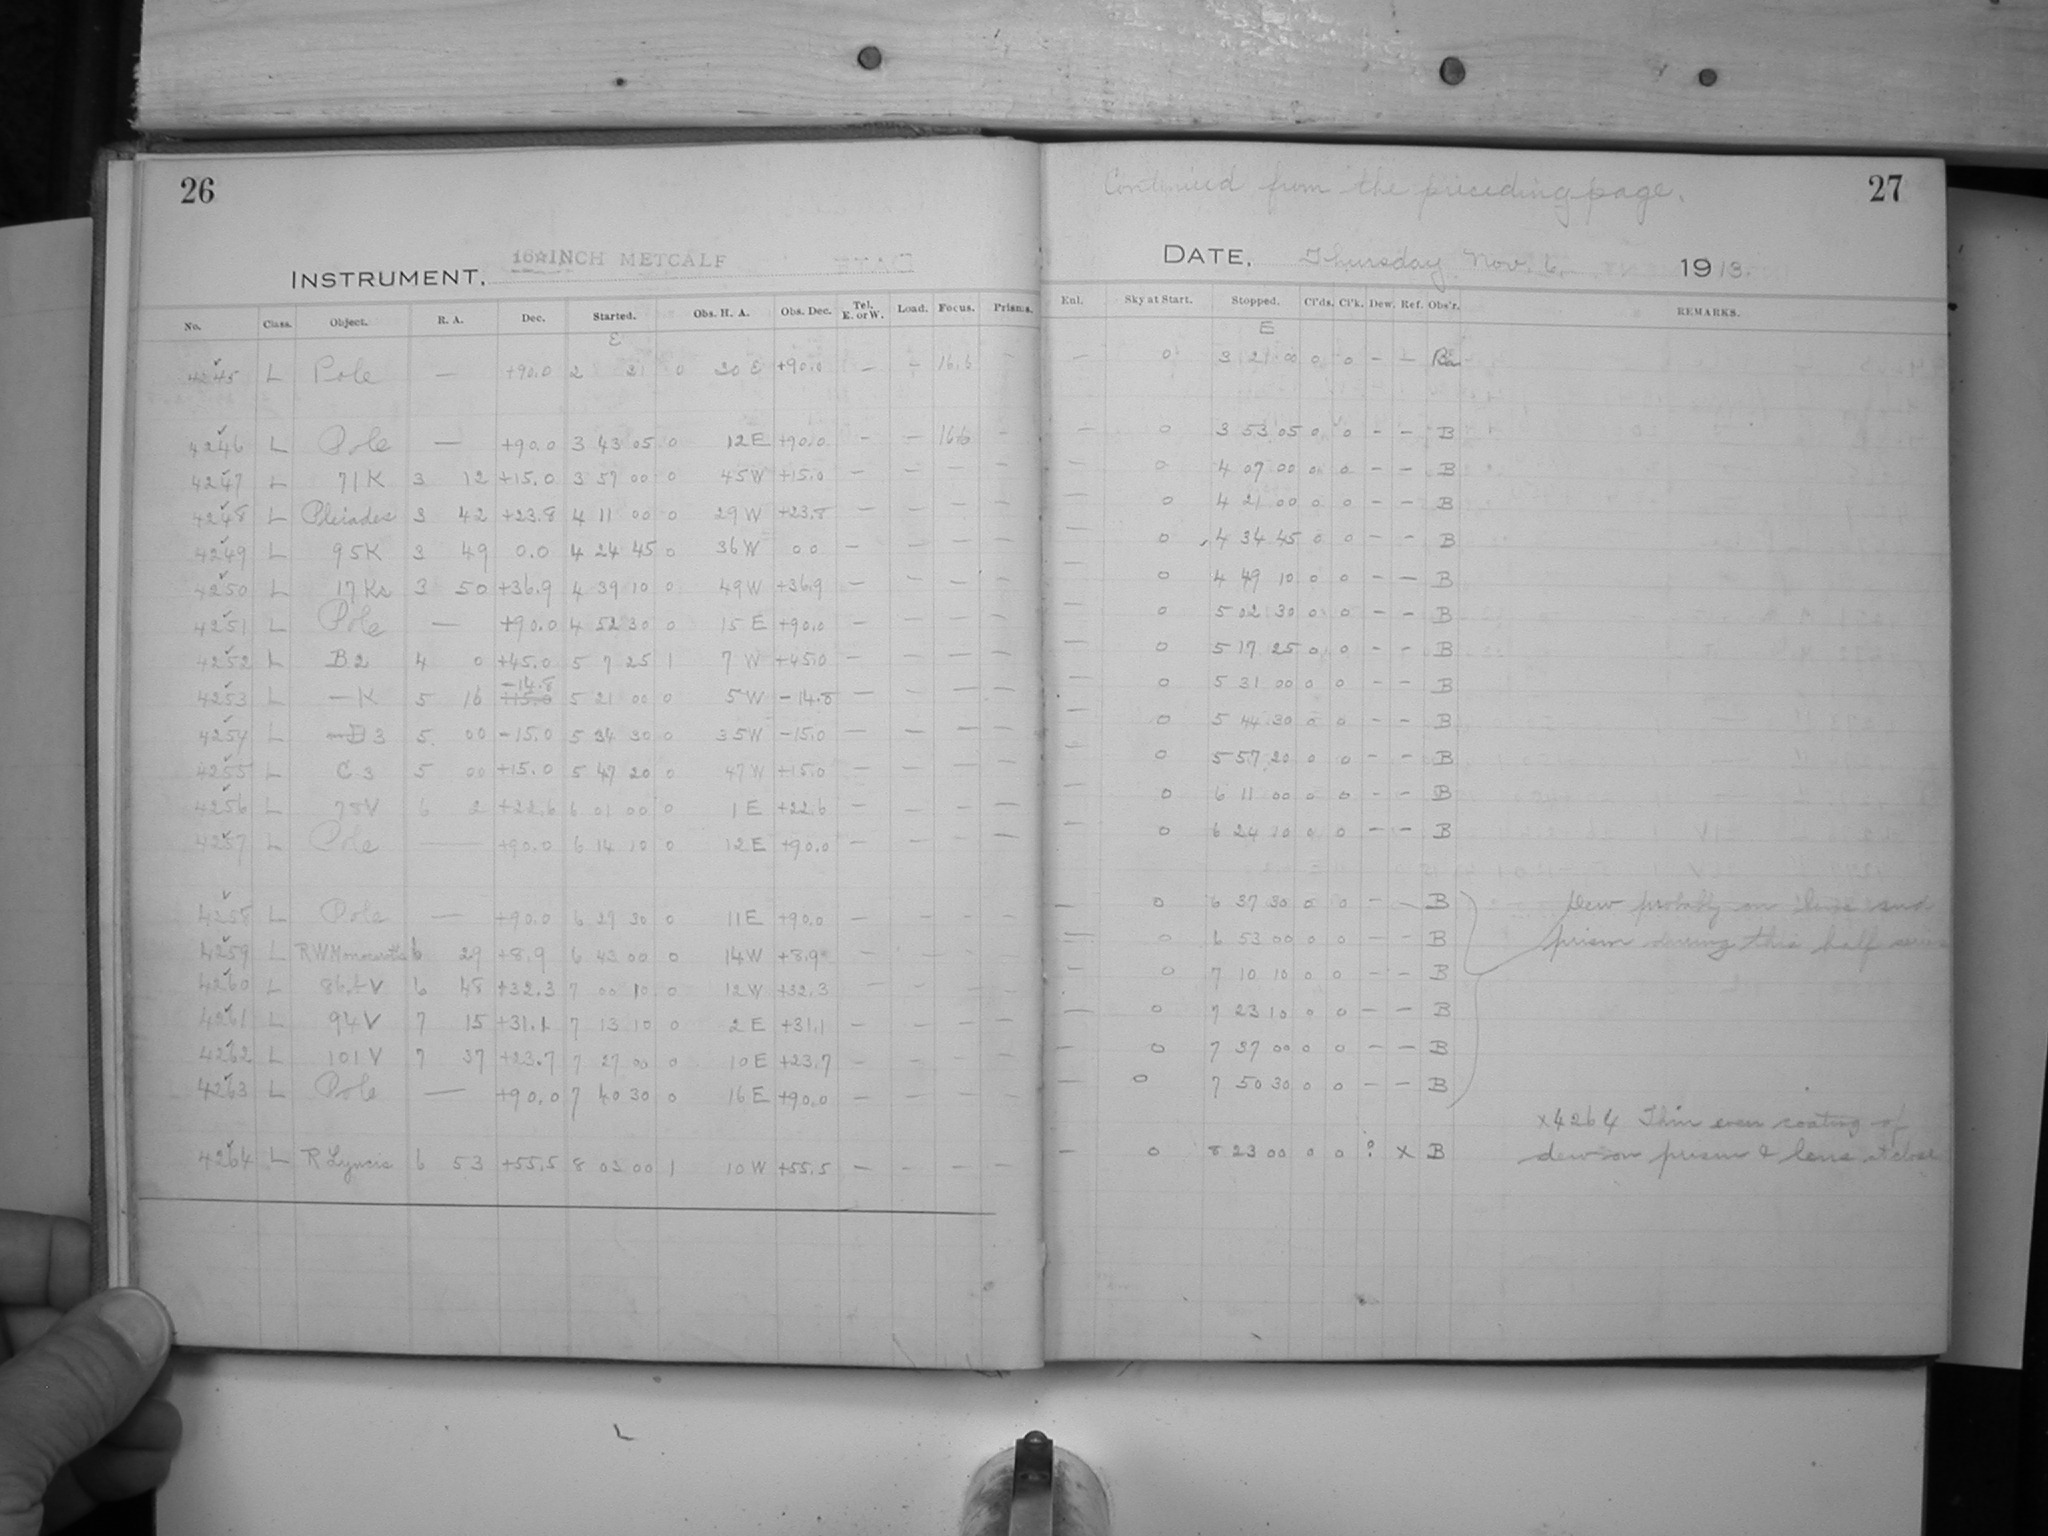 26
INSTRUMENT. 16 INCH METCALF
No. Class. Object. R. A. Dec. Started. Obs. H. A. Obs. Dec. Tel. E. or W. Load. Focus. Prisms.
E
4245 L Pole — +90.0 2 21 0 20 E +90.0 — – 16.6 –
4246 L Pole — +90.0 3 43 05 0 12 E +90.0 – – 16.6 –
4247 L 71 K 3 12 +15.0 3 57 00 0 45 W +15.0 – – – –
4248 L Pleiades 3 42 +23.8 4 11 00 0 29 W +23.8 – – – –
4249 L 95K 3 49 0.0 4 24 45 0 36 W 0 0 – – – –
4250 L 17 Ks 3 50 +36.9 4 39 10 0 49 W +36.9 – – – –
4251 L Pole — +90.0 4 52 30 0 15 E +90.0 – – – –
4252 L B2 4 0 +45.0 5 7 25 1 7 W +45.0 – – – –
4253 L – K 5 16 +15.0 -14.8 5 21 00 0 5 W -14.8 – – – –
4254 L D 3 5 00 -15.0 5 34 30 0 35 W -15.0 – – – –
4255 L C 3 5 00 +15.0 5 47 20 0 47 W +15.0 – – – –
4256 L 78V 6 2 +22.6 6 01 00 0 1 E +22.6 – – – –
4257 L Pole — +90.0 6 14 10 0 12 E +90.0 – – – –
4258 L Pole — +90.0 6 27 30 0 11 E +90.0 – – – –
4259 L RW Monocerotis 6 29 +8.9 6 43 00 0 14 W +8.9 – – – –
4260 L V 6 48 +32.3 7 00 10 0 12 W +32.3 – – – –
4261 L 94 V 7 15 +31.1 7 13 10 0 2 E +31.1 – – – –
4262 L 101 V 7 37 +23.7 7 27 00 0 10 E +23.7 – – – –
4263 L Pole — +90.0 7 40 30 0 16 E +90.0 – – – –
4264 L R Lyncis 6 53 +55.5 8 03 00 1 10 W +55.5 – – – –
Continued from the preceding page.
27
DATE. Thursday Nov. 6. 1913.
Enl. Sky at Start. Stopped. Cl'ds. Cl'k. Dew. Ref. Obs'r. REMARKS.
E
– 0 3 21 00 0 0 – – Ba
– 0 3 53 05 0 0 – – B
– 0 4 07 00 0 0 – – B
– 0 4 21 00 0 0 – – B
– 0 4 34 45 0 0 – – B
– 0 4 49 10 0 0 – – B
– 0 5 02 30 0 0 – – B
– 0 5 17 25 0 0 – – B
– 0 5 31 00 0 0 – – B
– 0 5 44 30 0 0 – – B
– 0 5 57 20 0 0 – – B
– 0 6 11 00 0 0 – – B
– 0 6 24 10 0 0 – – B
– 0 6 37 30 0 0 – – B Dew probably on lens and
– 0 6 53 00 0 0 – – B prism during this half series
– 0 7 10 10 0 0 – – B
– 0 7 23 10 0 0 – – B
– 0 7 37 00 0 0 – – B
– 0 7 50 30 0 0 – – B
x4264 Thin even coating of
– 0 8 23 00 0 0 : x B dew on prism & lens at close